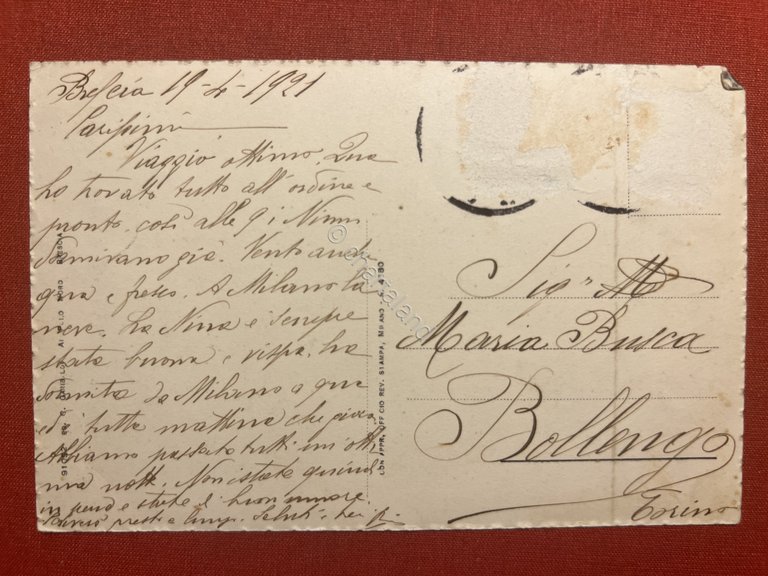 Brescia 19-4-1921
Carissimi
Viaggio ottimo. Qua
ho trovato tutto all'ordine e
pronto, così alle 9 i Ninni
dormivano già. Vento anche
qua e fresco. A Milano la
neve. La Nina è sempre
stata buona e vispa, ha
dormito da Milano a qua
è tutta mattina che gioca
Abbiamo passato tutti un'otti
ma notte. Non istate quindi
in pena e state di buon umore.
presto a Saluti
Sig.ra
Maria Busca
Bollengo
Torino
CON APPR. UFFICIO REV. STAMPA, MILANO N. 4180
BRESCIA
© cartoland